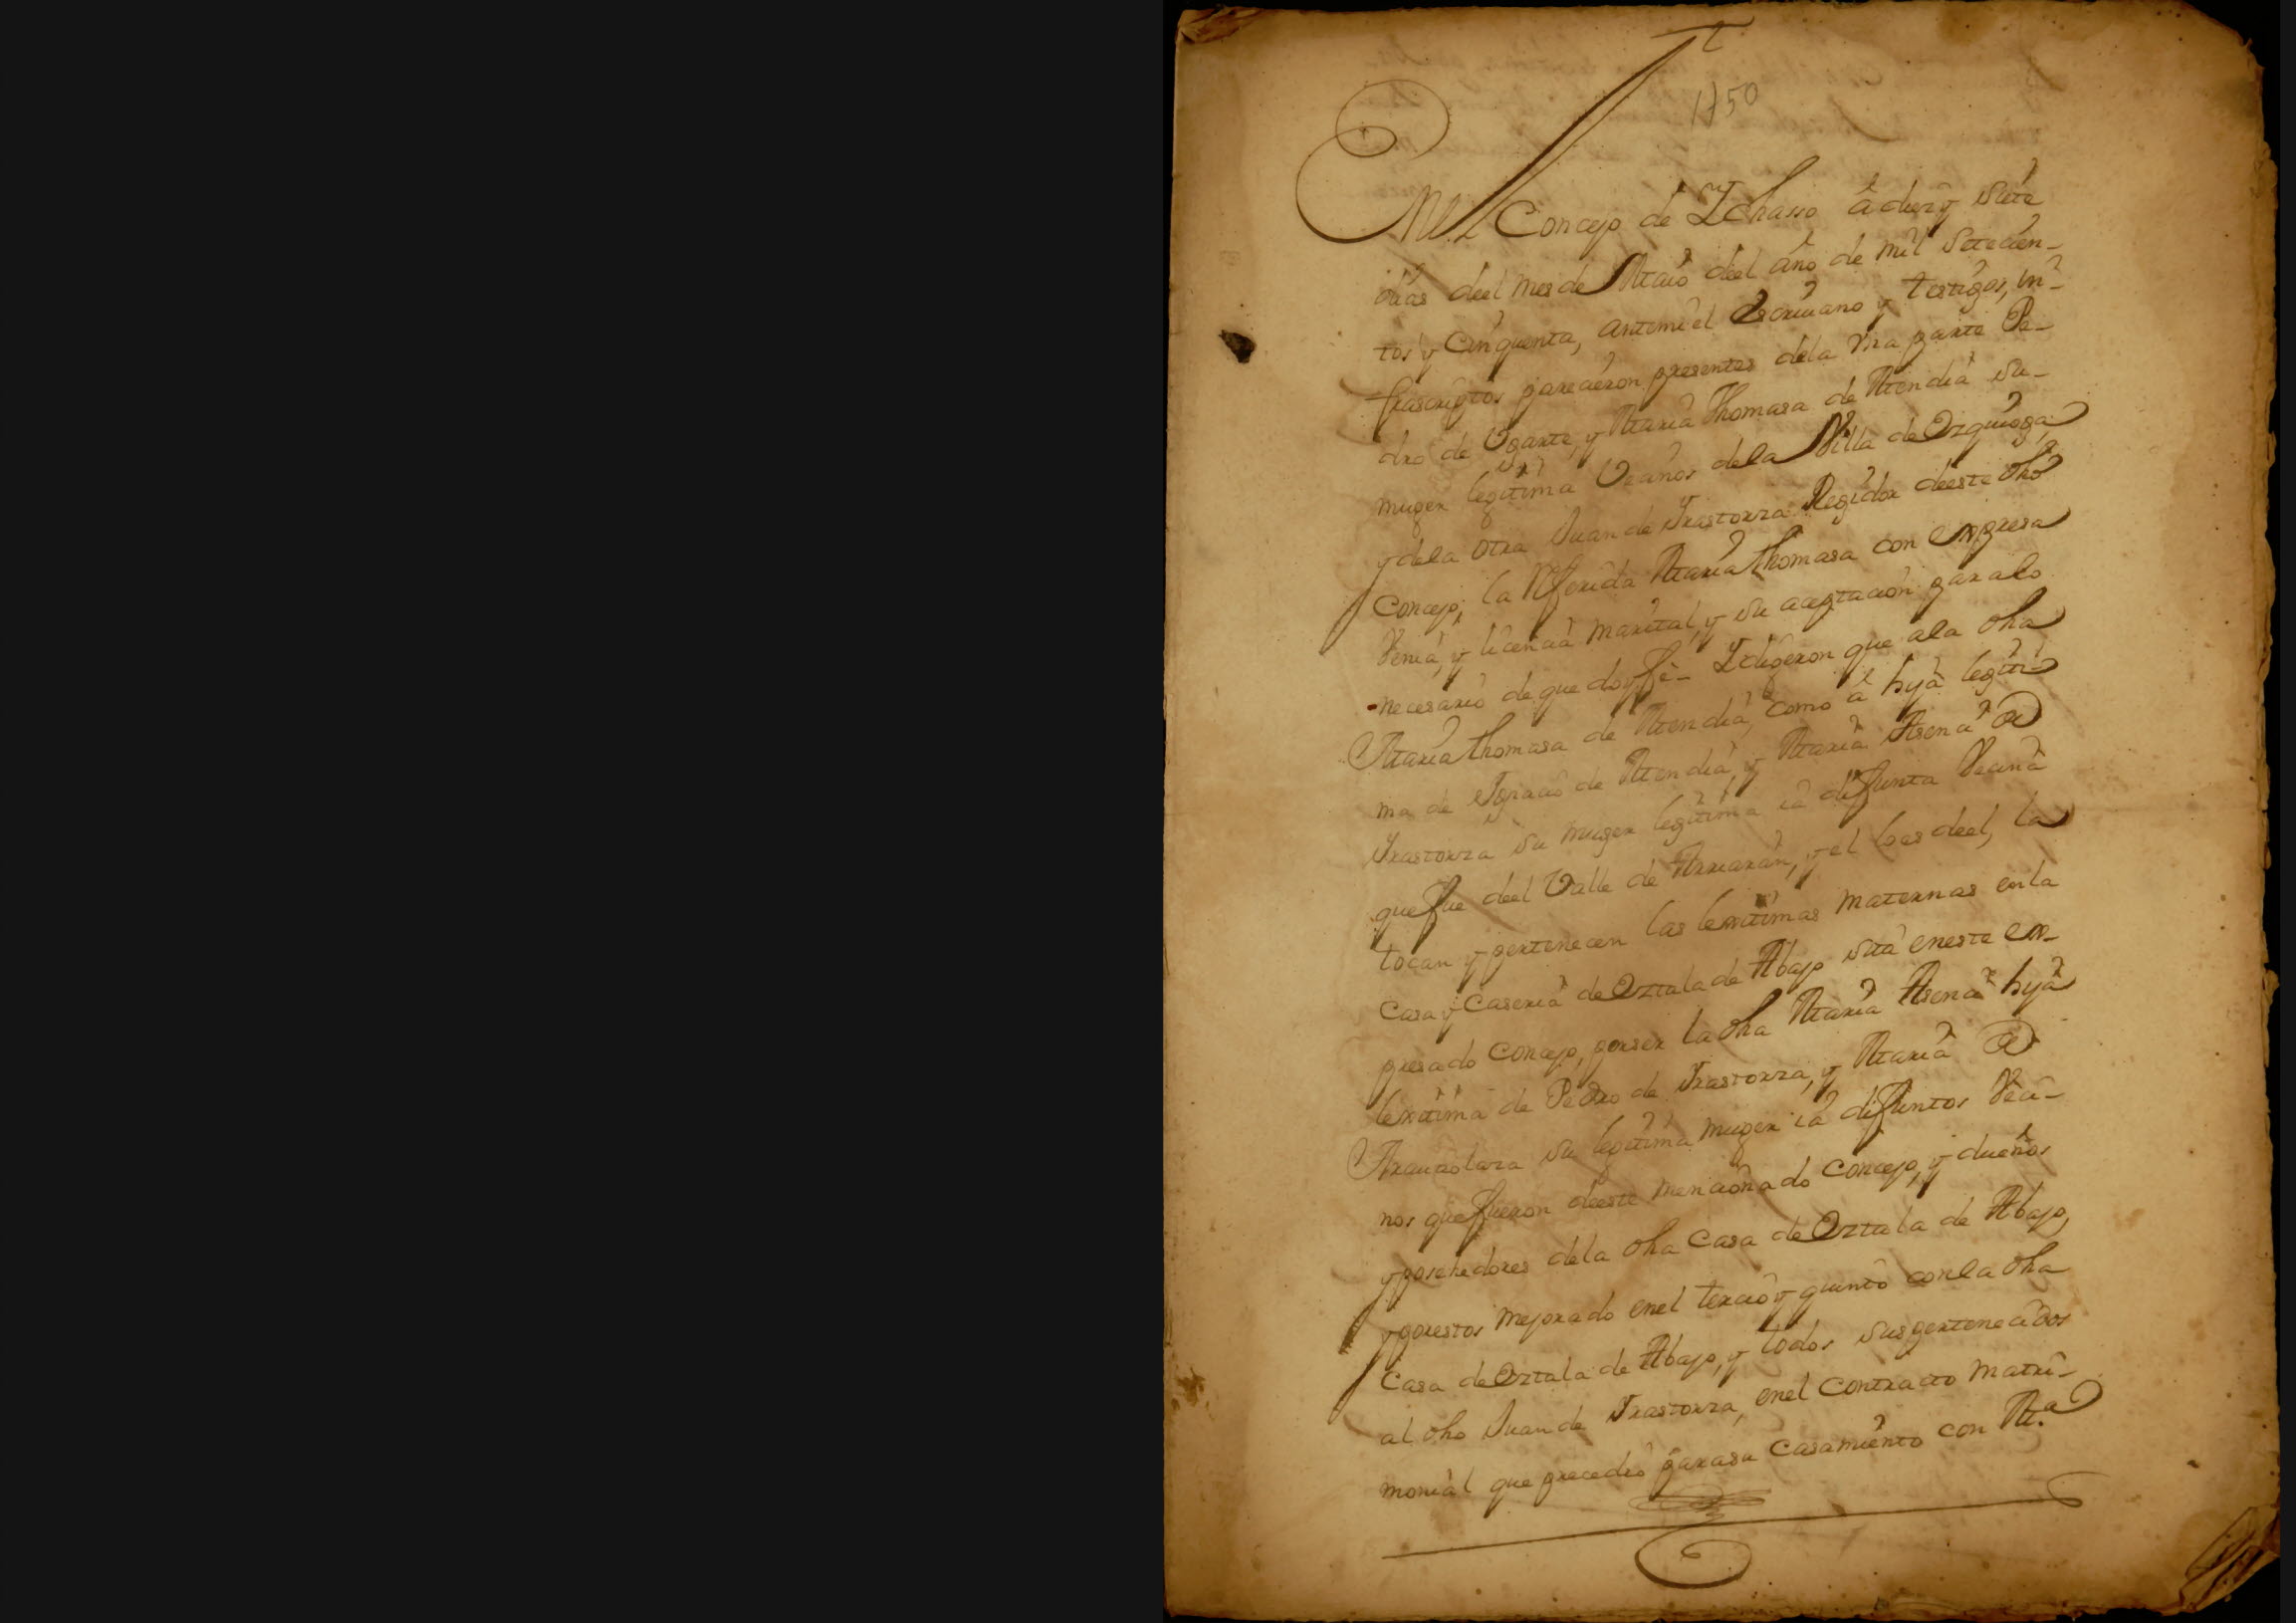 1750
En el Concejo de Ychasso â diez y siete
dias deel mes de Maio deel año de mil setecien-
tos y cinquenta, antemi el Escriuano y testigos, in-
frascriptos parecieron presentes dela vna parte Pe-
dro de Ugarte, y Maria Thomasa de Mendia su
muger legitima Vecinos dela Villa de Ezquioga,
y dela otra Juan de Irastorza Regidor deeste dho
Concejo, la referida Maria Thomasa con expresa
Venia, y licencia marital, y su aceptacion para lo
necesario de que doy fê- Y digeron que ala dha
Maria Thomasa de Mendia, como â hija legiti-
ma de Ignacio de Mendia, y Maria Asencia de
Irastorza su muger legitima ia difunta Vecina
que fue deel Valle de Arriaran, y el lo es deel, la
tocan y pertenecen las lexitimas maternas enla
Casa y Caseria de Oztala de Abajo sita eneste ex-
presado Concejo, por ser la dha Maria Asencia hija
lexitima de Pedro de Irastorza, y Maria de
su legitima muger ia difuntos Veci-
nos que fueron deeste mencionado Concejo, y dueños
y posehedores dela dha Casa de Oztala de Abajo,
y porestos mejorado enel tercio y quinto conla dha
Casa de Oztala de Abajo, y todos sus pertenecidos
al dho Juan de Irastorza, enel Contracto matri-
monial que precediô para su Casamiento con M.ª